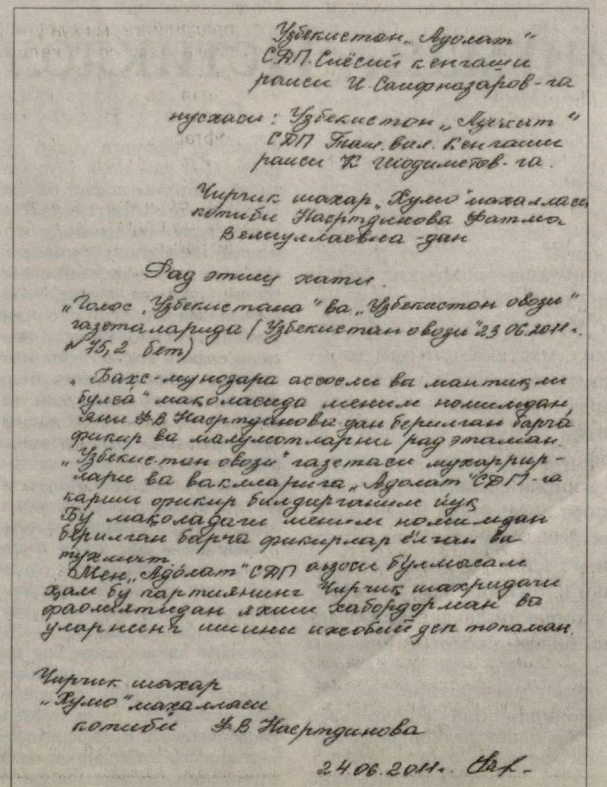 Узбекистон „Адолат"
СДП. Сиёсий кенгаши
раиси И. Саифназаров-га
нусхаси: Узбекистон „Адолат"
СДП Тош. вил. Кенгаши
раиси К
Чирчик шахар „Хумо" махалласи
котиби Насртдинова Фатма
Велиуллаевна-дан
Рад этиш хати.
„Голос Узбекистана" ва „Узбекистон овози"
газеталарида (Узбекистан овози" 23 06.2011г.
№ 75, 2 бет)
„Бахс-мунозара асосли ва мантикли
булса" маколасида меним номимдан,
яни Ф В Насртдинова-дан берилган барча
фикир ва малумотларни рад этаман.
„Узбекистон овози" газетаси мухаррир-
лари ва вакиларига „Адолат" СДП-га
карши фикир билдирганим йук
Бу маколадаги меним номимдан
берилган барча фикирлар ёлган ва
тухмат.
Мен „Адолат" СДП аъзоси булмасам
ҳам бу партиянинг Чирчиқ шахридаги
фаолиятидан яхши хабордорман ва
уларнинг ишини ижобий деп топаман.
Чирчик шахар
„Хумо" махалласи
котиби Ф В Насртдинова
24.06.2011г.